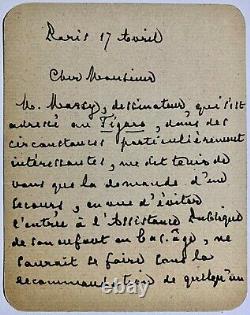 Paris 17 Avril
Cher Monsieur
M. Massy, dessinateur, qui s'est
adressé au Figaro, dans des
circonstances particulièrement
intéressantes, me dit tenir de
vous que la demande d'un
secours, en vue d'éviter
l'entrée à l'Assistance Publique
de son enfant en bas-âge, ne
saurait se faire sans la
recommandation de quelqu'un